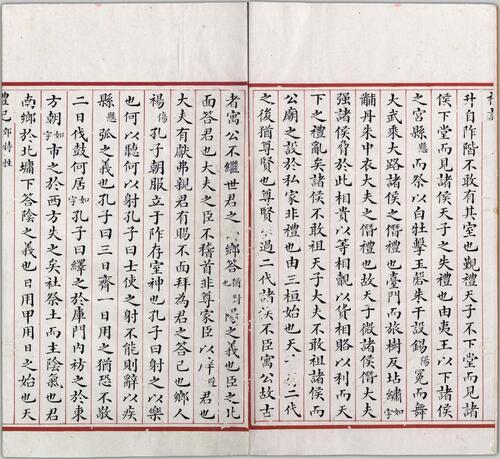 升自阼階不敢有其室也覲禮天子不下堂而見諸
侯下堂而見諸侯天子之失禮也由夷王以下諸侯
之宮縣懸而祭以白牡擊玉磬朱干設鍚陽冕而舞
大武乘大路諸侯之僭禮也臺門而旅樹反坫繡如字
黼丹朱中衣大夫之僭禮也故天子微諸侯僭大夫
强諸侯脅於此相貴以等相覿以貨相賂以利而天
下之禮亂矣諸侯不敢祖天子大夫不敢祖諸侯而
公廟之設於私家非禮也由三桓始也天二代
之後猶尊賢也尊賢過二代諸侯不臣寓公故古
者寓公不繼世君之鄉答之義也臣之北
面答君也大夫之臣不稽首非尊家臣以君也
大夫有獻弗親君有賜不面拜為君之答己也鄉人
禓傷孔子朝服立于阼存室神也孔子曰射之以樂
也何以聽何以射孔子曰士使之射不能則辭以疾
縣懸弧之義也孔子曰三日齊一日用之猶恐不敬
二日伐鼓何居如字孔子曰繹之於庫門內祊之於東
方朝如字市之於西方失之矣社祭土而主陰氣也君
南鄉於北墉下答陰之義也日用甲用日之始也天
禮記 郊特牲